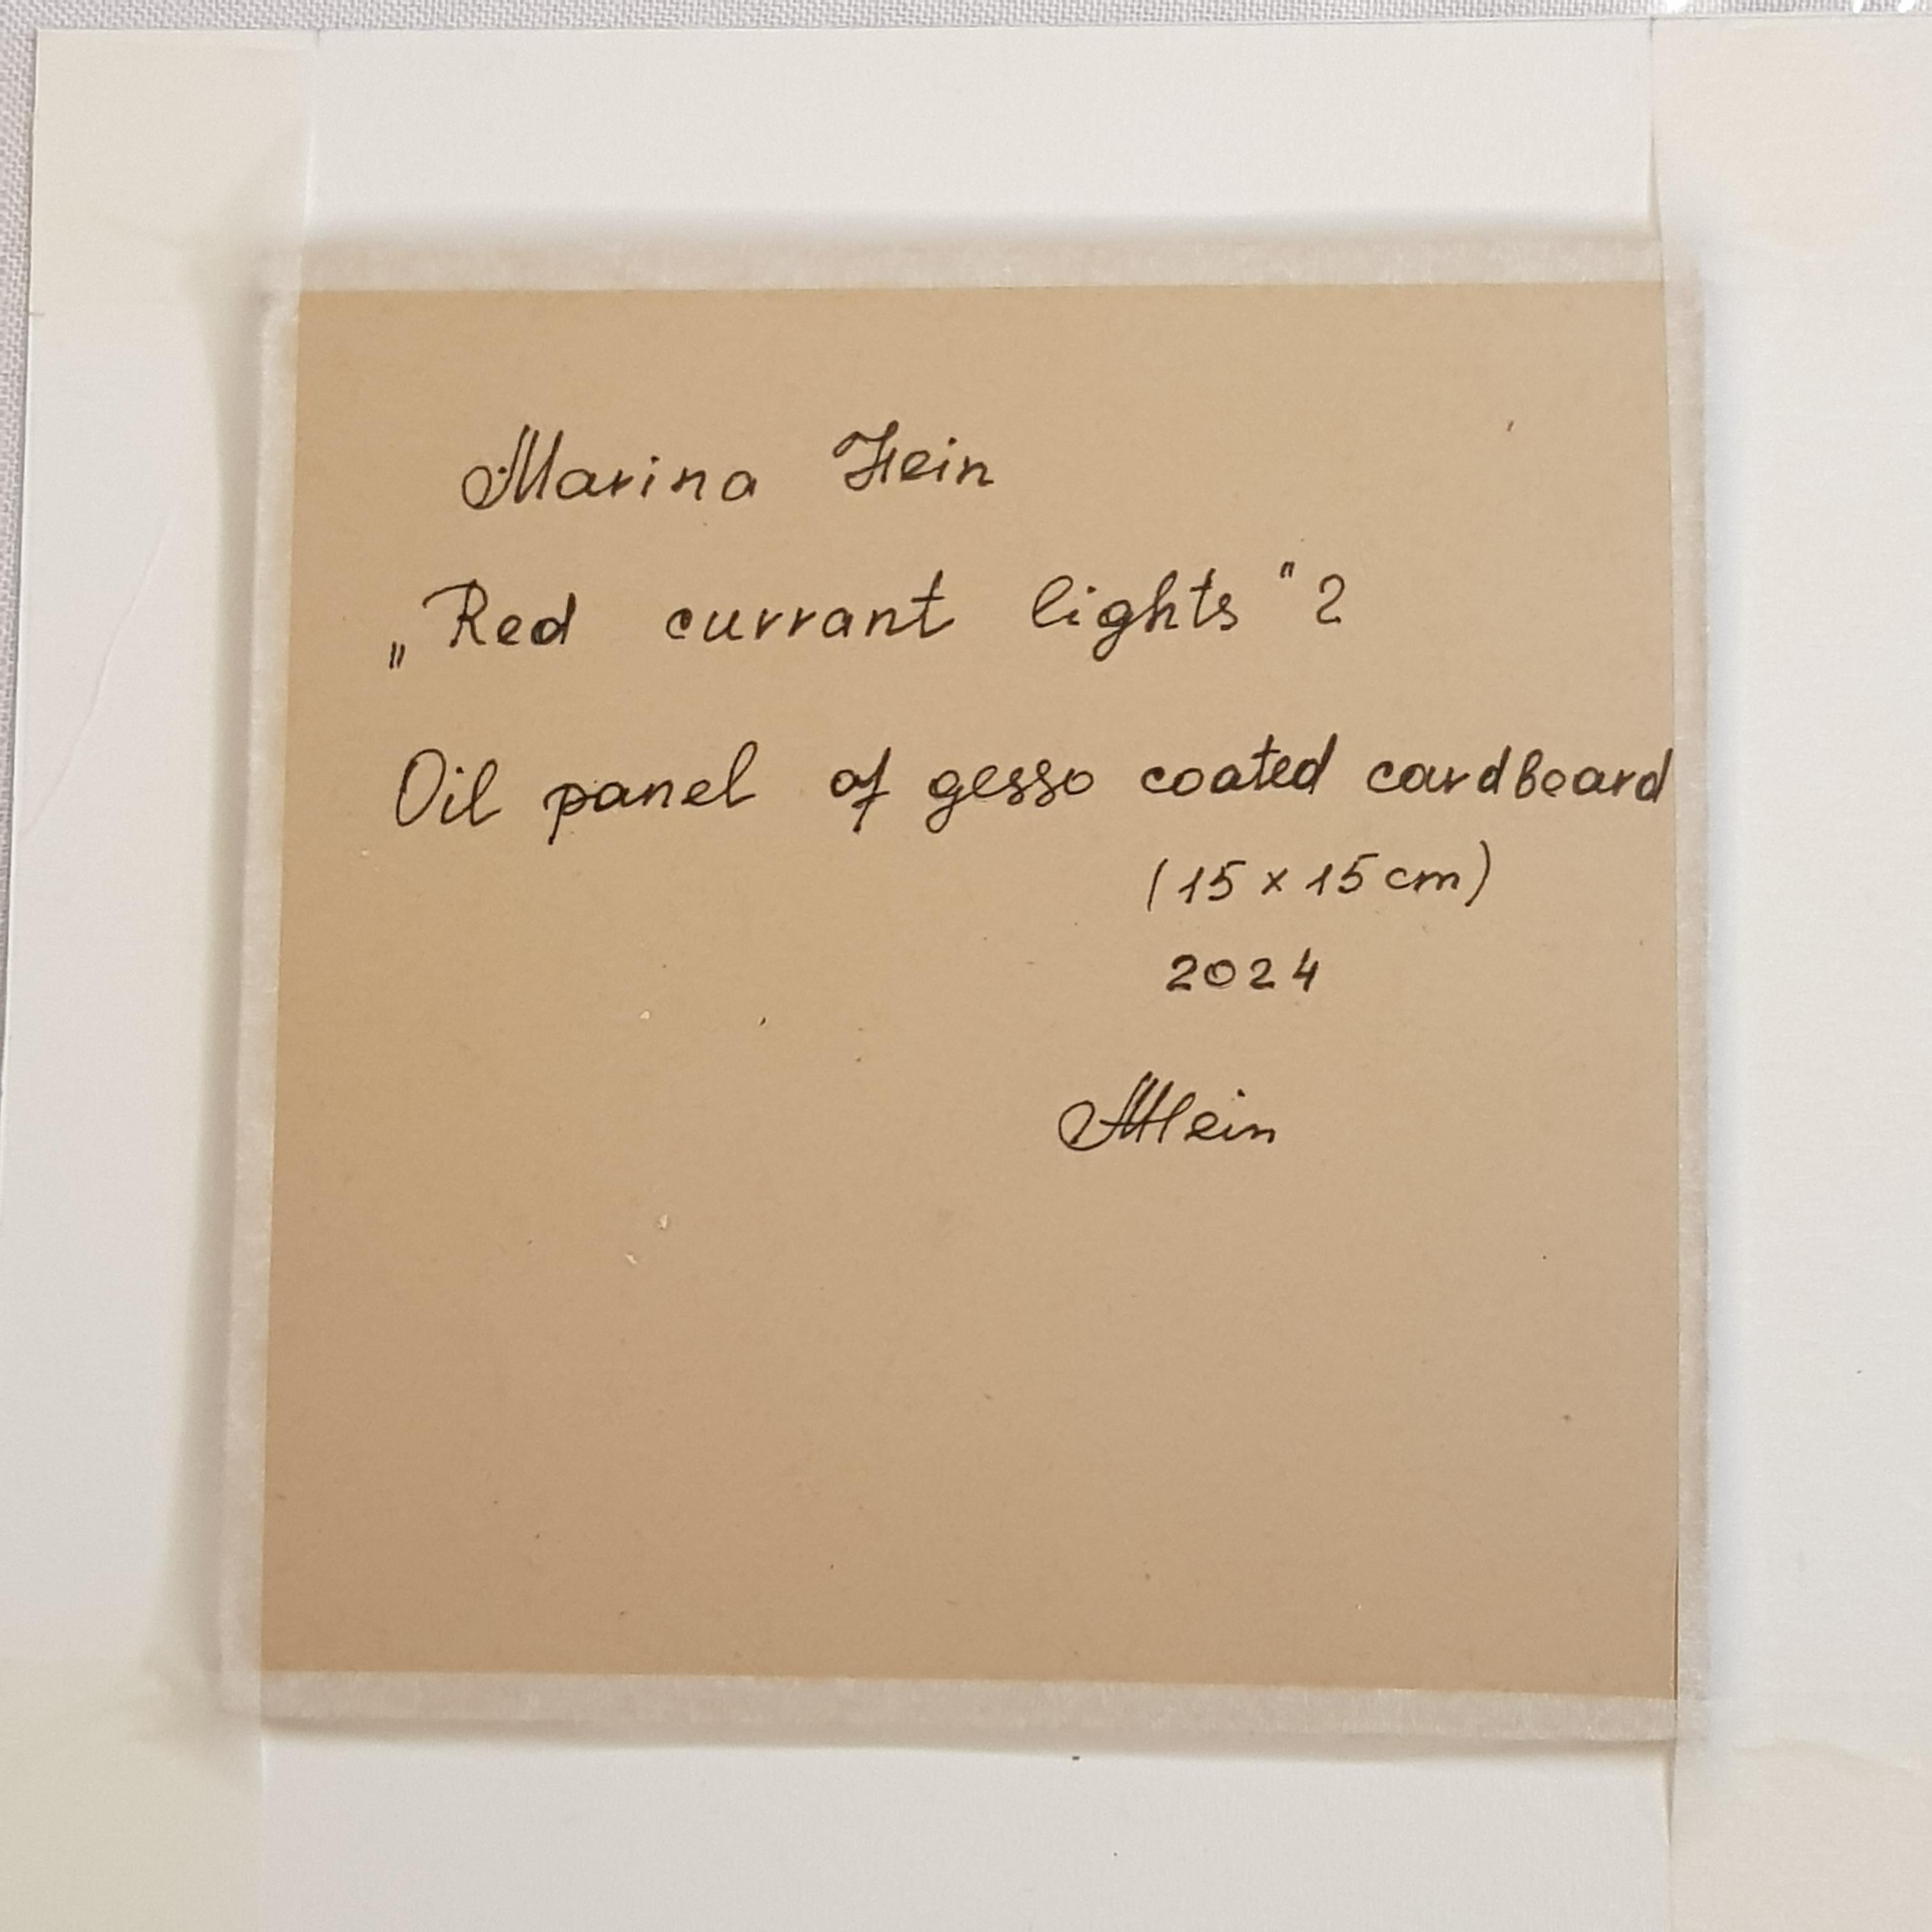 Marina Hein
„Red currant lights" 2
Oil panel of gesso coated cardboard
(15 x 15 cm)
2024
MHein